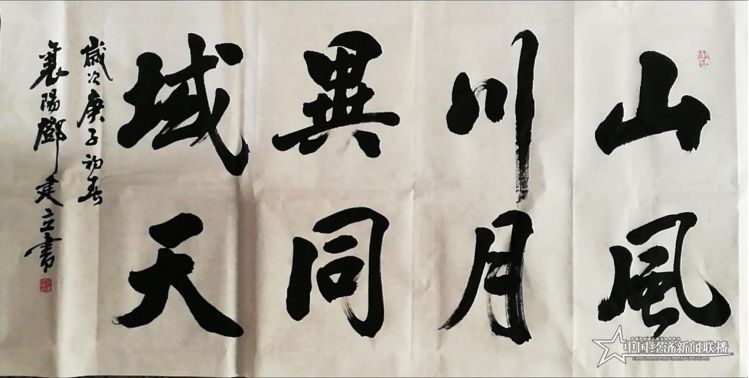 山川異域
風月同天
歲次庚子初春
襄陽鄧建立書
中国经济新闻联播